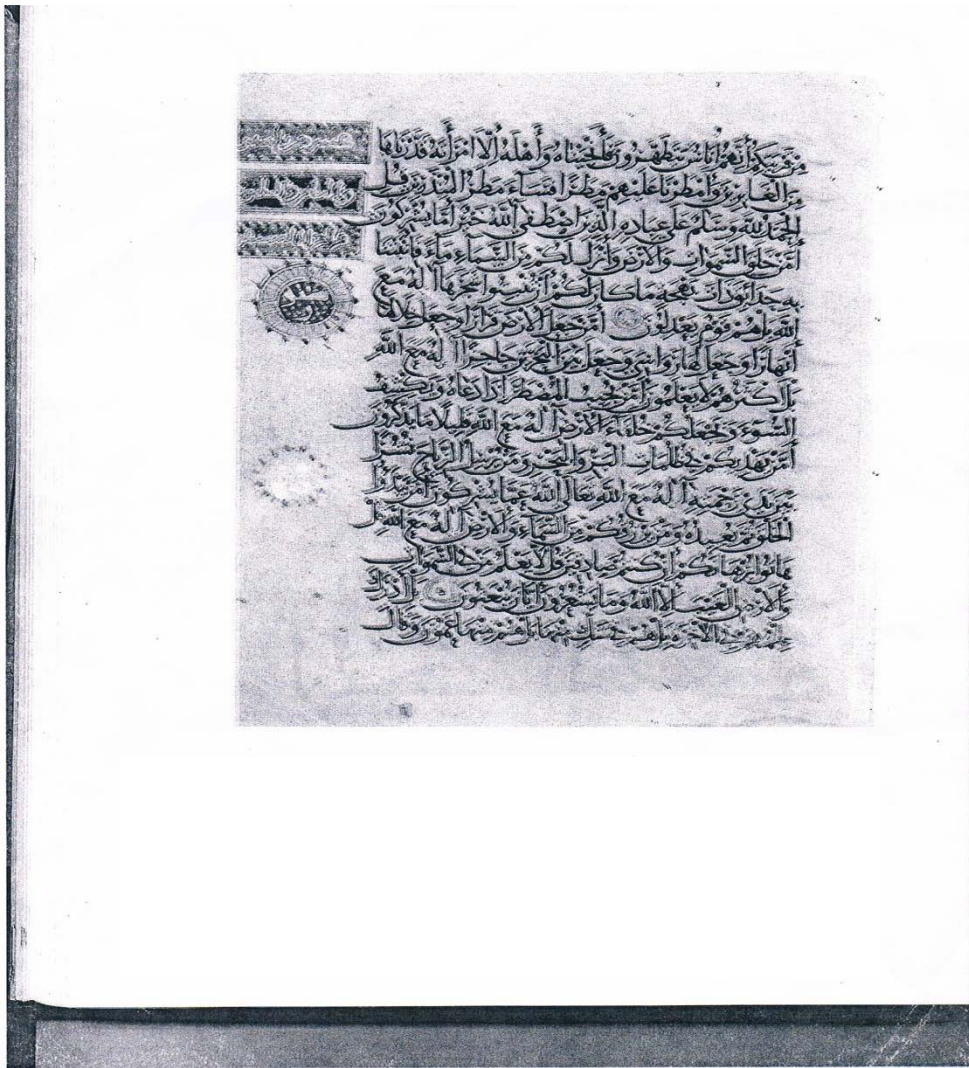 مِن قريتكم أنهم أناس يتطهرون فأنجيناه وأهله الا امرأته قدرناها
من الغابرين وأمطرنا عليهم مطرا فساء مطر المنذرين قل
الحمد لله وسلم على عباده الذين اصطفى آلله خير أما يشركون
أمن خلق السموات والأرض وأنزل لكم من السماء ماء فأنبتنا
به حدائق ذات بهجة ما كان لكم أن تنبتوا شجرها أاله مع
الله بل هم قوم يعدلون أمن جعل الأرض قرارا وجعل خلالها
أنهارا وجعل لها رواسي وجعل بين البحرين حاجزا أاله مع الله
بل أكثرهم لا يعلمون أمن يجيب المضطر إذا دعاه ويكشف
السوء ويجعلكم خلفاء الأرض أاله مع الله قليلا ما يذكرون
أمن يهديكم في ظلمات البر والبحر ومن يرسل الرياح نشرا
بين يدي رحمته أاله مع الله تعالى الله عما يشركون أمن يبدؤا
الخلق ثم يعيده ومن يرزقكم من السماء والأرض أاله مع الله قل
هاتوا برهانكم إن كنتم صادقين قل لا يعلم من في السموات
والأرض الغيب الا الله وما يشعرون أيان يبعثون بل ادارك
علمهم في الآخرة بل هم في شك منها بل هم منها عمون وقال